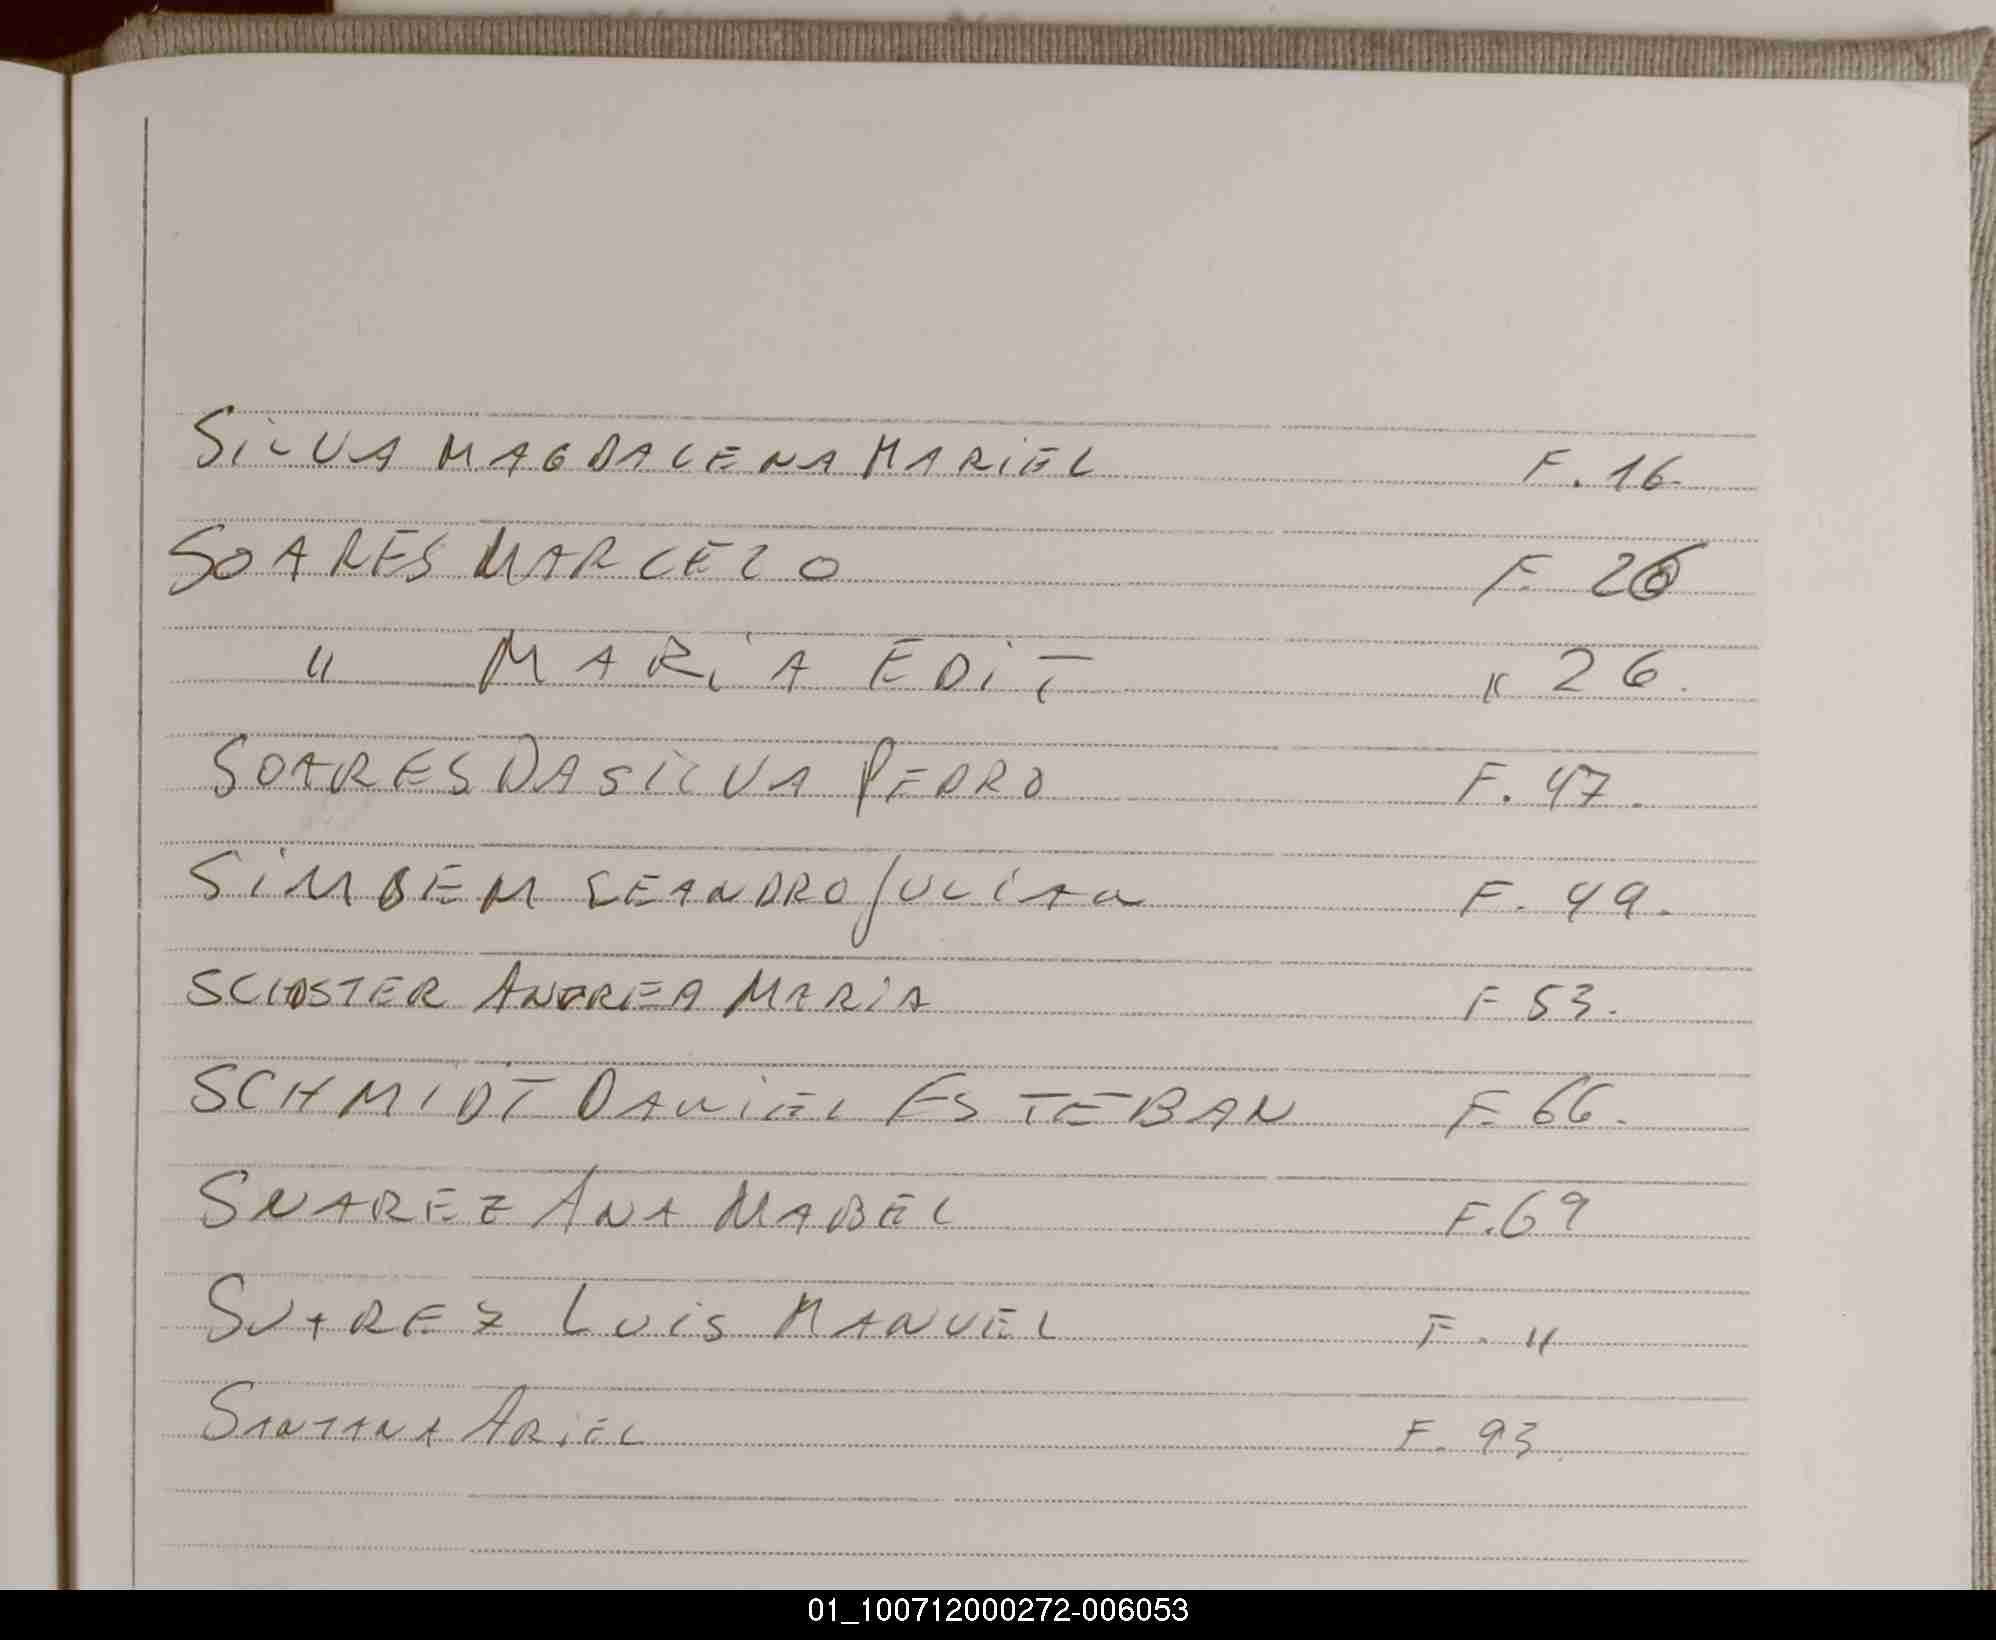 SILVA MAGDALENA MARIEL F. 16.
SOARES MARCELO F. 26
" MARIA EDIT " 26.
SOARES DA SILVA PEDRO F. 47.
SIMBEM LEANDRO JULIAN F. 49.
ANDREA MARIA F 53.
SCHMIDT DANIEL ESTEBAN F. 66.
SUAREZ ANA MABEL F. 69
SUAREZ LUIS MANUEL F. "
SANTANA ARIEL F. 93.
01_100712000272-006053